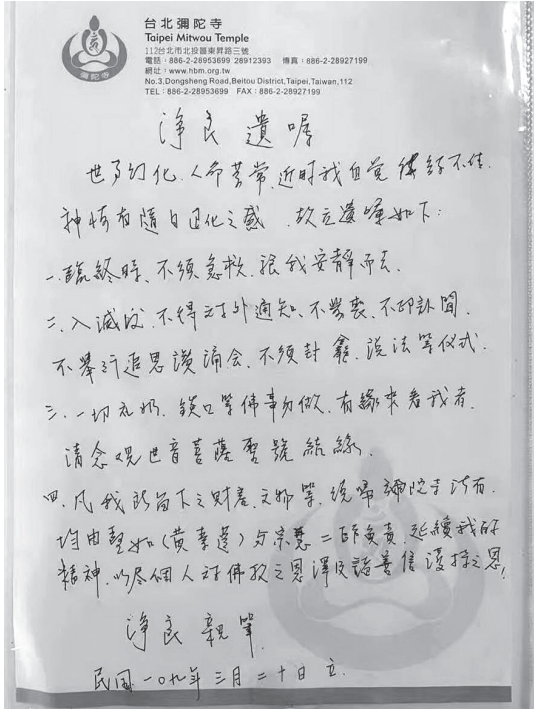 台北彌陀寺
Taipei Mitwou Temple
112台北市北投區東昇路三號
電話：886-2-28953699 28912393 傳真：886-2-28927199
網址：www.hbm.org.tw
No.3,Dongsheng Road,Beitou District,Taipei,Taiwan,112
TEL：886-2-28953699 FAX：886-2-28927199
彌陀寺
淨良遺囑
世事幻化、人命無常、近時我自覺体経不佳、
神情有隨日退化之感、故立遺嘱如下：
一、臨終時、不須急救、讓我安靜而去、
二、入滅後、不得对外通知、不發喪、不印訃聞、
不舉行追思讚誦会、不須封龕、說法等仪式、
三、一切元奶、鎖口等佛事勿做、有緣來看我者、
請念观世音菩薩聖號結緣、
四、凡我所留下之財產、文物等、統歸彌陀寺所有、
均由聖如(黃素蓮)与宗慧二師負責、延續我的
精神、以尽個人对佛教之恩澤及諸善信護持之恩！
淨良親筆
民国一〇九年三月二十日立